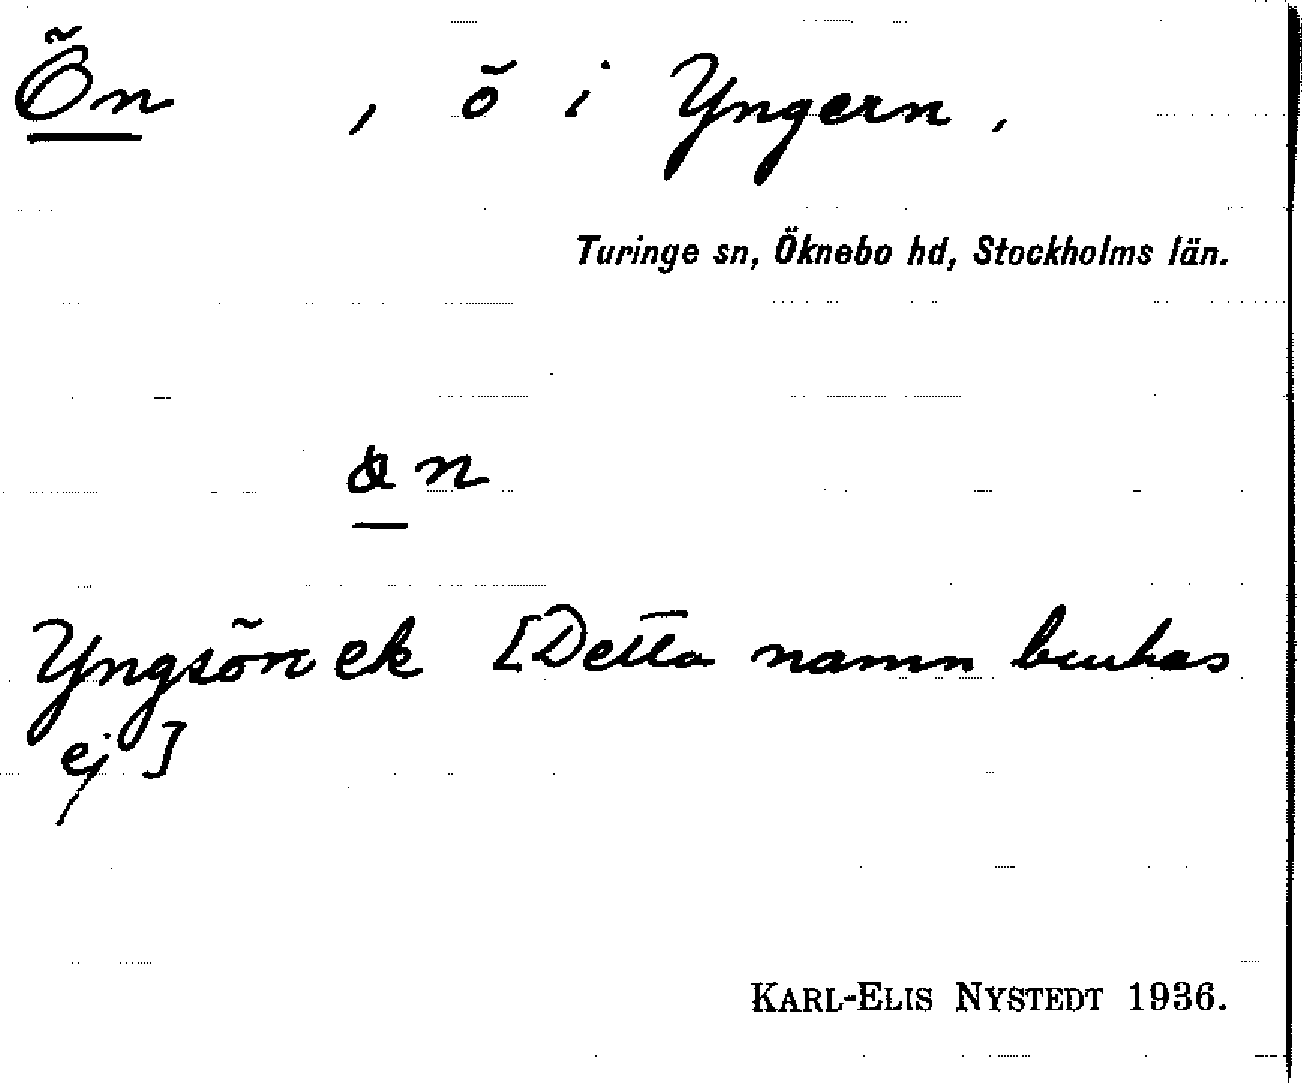 Ön , ö i Yngern ,
Turinge sn, Öknebo hd, Stockholms län.
Yngsön ek [Detta namn brukas
ej]
KARL-ELIS NYSTEDT 1936.